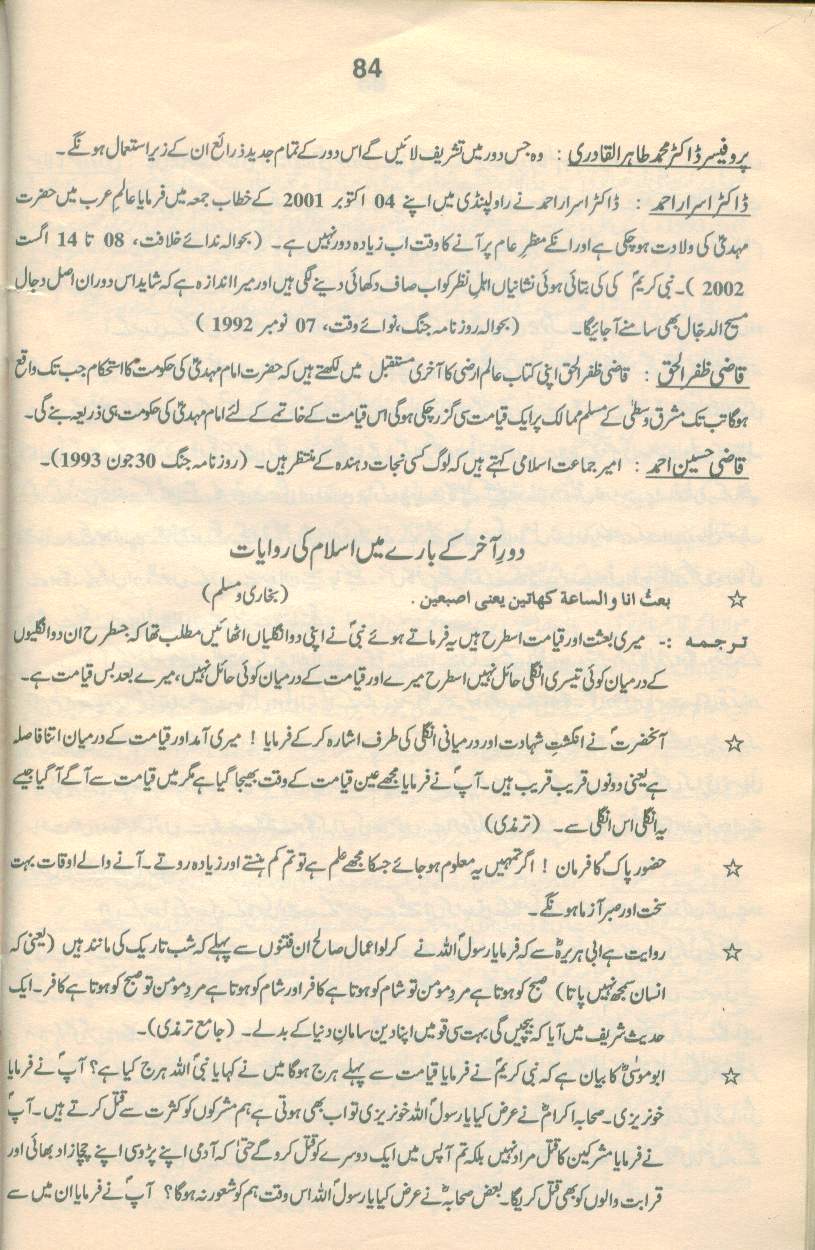 84
پروفیسر ڈاکٹر محمد طاہر القادری : وہ جس دور میں تشریف لائیں گے اس دور کے تمام جدید ذرائع ان کے زیر استعمال ہونگے۔
ڈاکٹر اسرار احمد : ڈاکٹر اسرار احمد نے راولپنڈی میں اپنے 04 اکتوبر 2001 کے خطاب جمعہ میں فرمایا عالمِ عرب میں حضرت
مہدیؑ کی ولادت ہوچکی ہے اور انکے منظرِ عام پر آنے کا وقت اب زیادہ دور نہیں ہے۔ (بحوالہ ندائے خلافت، 08 تا 14 اگست
2002 )۔ نبی کریمؐ کی کی بتائی ہوئی نشانیاں اہلِ نظر کو اب صاف دکھائی دینے لگی ہیں اور میرا اندازہ ہے کہ شاید اس دوران اصل دجال
مسیح الدجال بھی سامنے آجائیگا۔ (بحوالہ روزنامہ جنگ، نوائے وقت، 07 نومبر 1992 )
قاضی ظفر الحق : قاضی ظفر الحق اپنی کتاب عالم ارضی کا آخری مستقبل میں لکھتے ہیں کہ حضرت امام مہدیؑ کی حکومت کا استحکام جب تک واقع
ہوگا تب تک مشرق وسطیٰ کے مسلم ممالک پر ایک قیامت سی گزر چکی ہوگی اس قیامت کے خاتمے کے لئے امام مہدیؑ کی حکومت ہی ذریعہ بنے گی۔
قاضی حسین احمد : امیر جماعت اسلامی کہتے ہیں کہ لوگ کسی نجات دہندہ کے منتظر ہیں۔ (روزنامہ جنگ 30 جون 1993)۔
دورِ آخر کے بارے میں اسلام کی روایات
☆ بعثُ انا والساعة کهاتین یعنی اصبعین. (بخاری و مسلم)
ترجمہ :۔ میری بعثت اور قیامت اسطرح ہیں یہ فرماتے ہوئے نبیؐ نے اپنی دو انگلیاں اٹھائیں مطلب تھا کہ جسطرح ان دو انگلیوں
کے درمیان کوئی تیسری انگلی حائل نہیں اسطرح میرے اور قیامت کے درمیان کوئی حائل نہیں، میرے بعد بس قیامت ہے۔
☆ آنحضرتؐ نے انگشتِ شہادت اور درمیانی انگلی کی طرف اشارہ کر کے فرمایا ! میری آمد اور قیامت کے درمیان اتنا فاصلہ
ہے یعنی دونوں قریب قریب ہیں۔ آپؐ نے فرمایا مجھے عین قیامت کے وقت بھیجا گیا ہے مگر میں قیامت سے آگے آ گیا جیسے
یہ انگلی اس انگلی سے۔ (ترمذی)
☆ حضور پاکؐ کا فرمان ! اگر تمہیں یہ معلوم ہو جائے جسکا مجھے علم ہے تو تم کم ہنستے اور زیادہ روتے۔ آنے والے اوقات بہت
سخت اور صبر آزما ہونگے۔
☆ روایت ہے ابی ہریرہؓ سے کہ فرمایا رسولؐ اللہ نے کرلو اعمال صالح ان فتنوں سے پہلے کہ شب تاریک کی مانند ہیں (یعنی کہ
انسان سمجھ نہیں پاتا) صبح کو ہوتا ہے مردِ مومن تو شام کو ہوتا ہے کافر اور شام کو ہوتا ہے مردِ مومن تو صبح کو ہوتا ہے کافر۔ ایک
حدیث شریف میں آیا کہ بیچیں گی بہت سی قومیں اپنا دین سامان دنیا کے بدلے۔ (جامع ترمذی)۔
☆ ابو موسیٰؓ کا بیان ہے کہ نبی کریمؐ نے فرمایا قیامت سے پہلے ہرج ہوگا میں نے کہا یا نبیؐ اللہ ہرج کیا ہے؟ آپؐ نے فرمایا
خونریزی۔ صحابہ اکرامؓ نے عرض کیا یا رسولؐ اللہ خونریزی تو اب بھی ہوتی ہے ہم مشرکوں کو کثرت سے قتل کرتے ہیں۔ آپؐ
نے فرمایا مشرکین کا قتل مراد نہیں بلکہ تم آپس میں ایک دوسرے کو قتل کروگے حتیٰ کہ آدمی اپنے پڑوسی اپنے چچازاد بھائی اور
قرابت والوں کو بھی قتل کریگا۔ بعض صحابہؓ نے عرض کیا یا رسولؐ اللہ اس وقت ہم کو شعور نہ ہوگا؟ آپؐ نے فرمایا ان میں سے